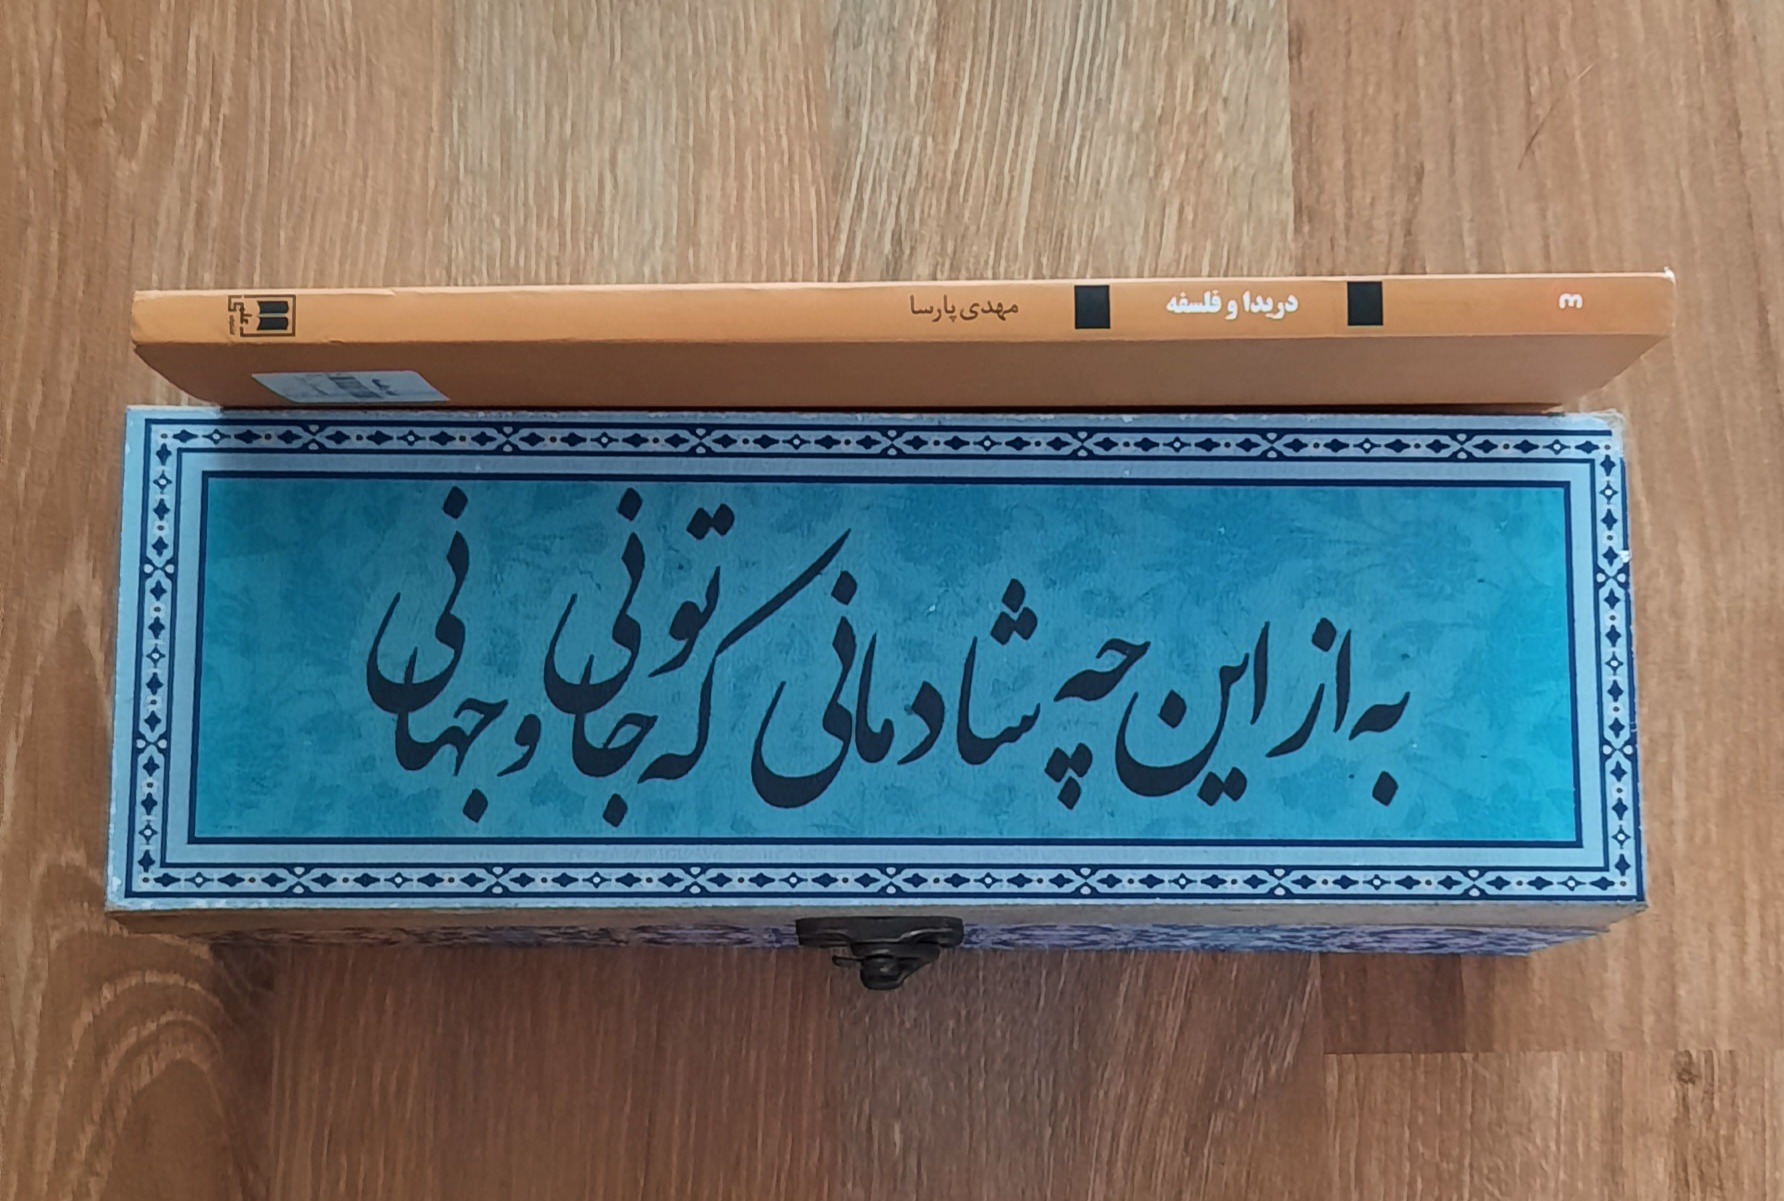 ۳ دریدا و فلسفه مهدی پارسا
به از این چه شادمانی که تو نی جانی و جهانی